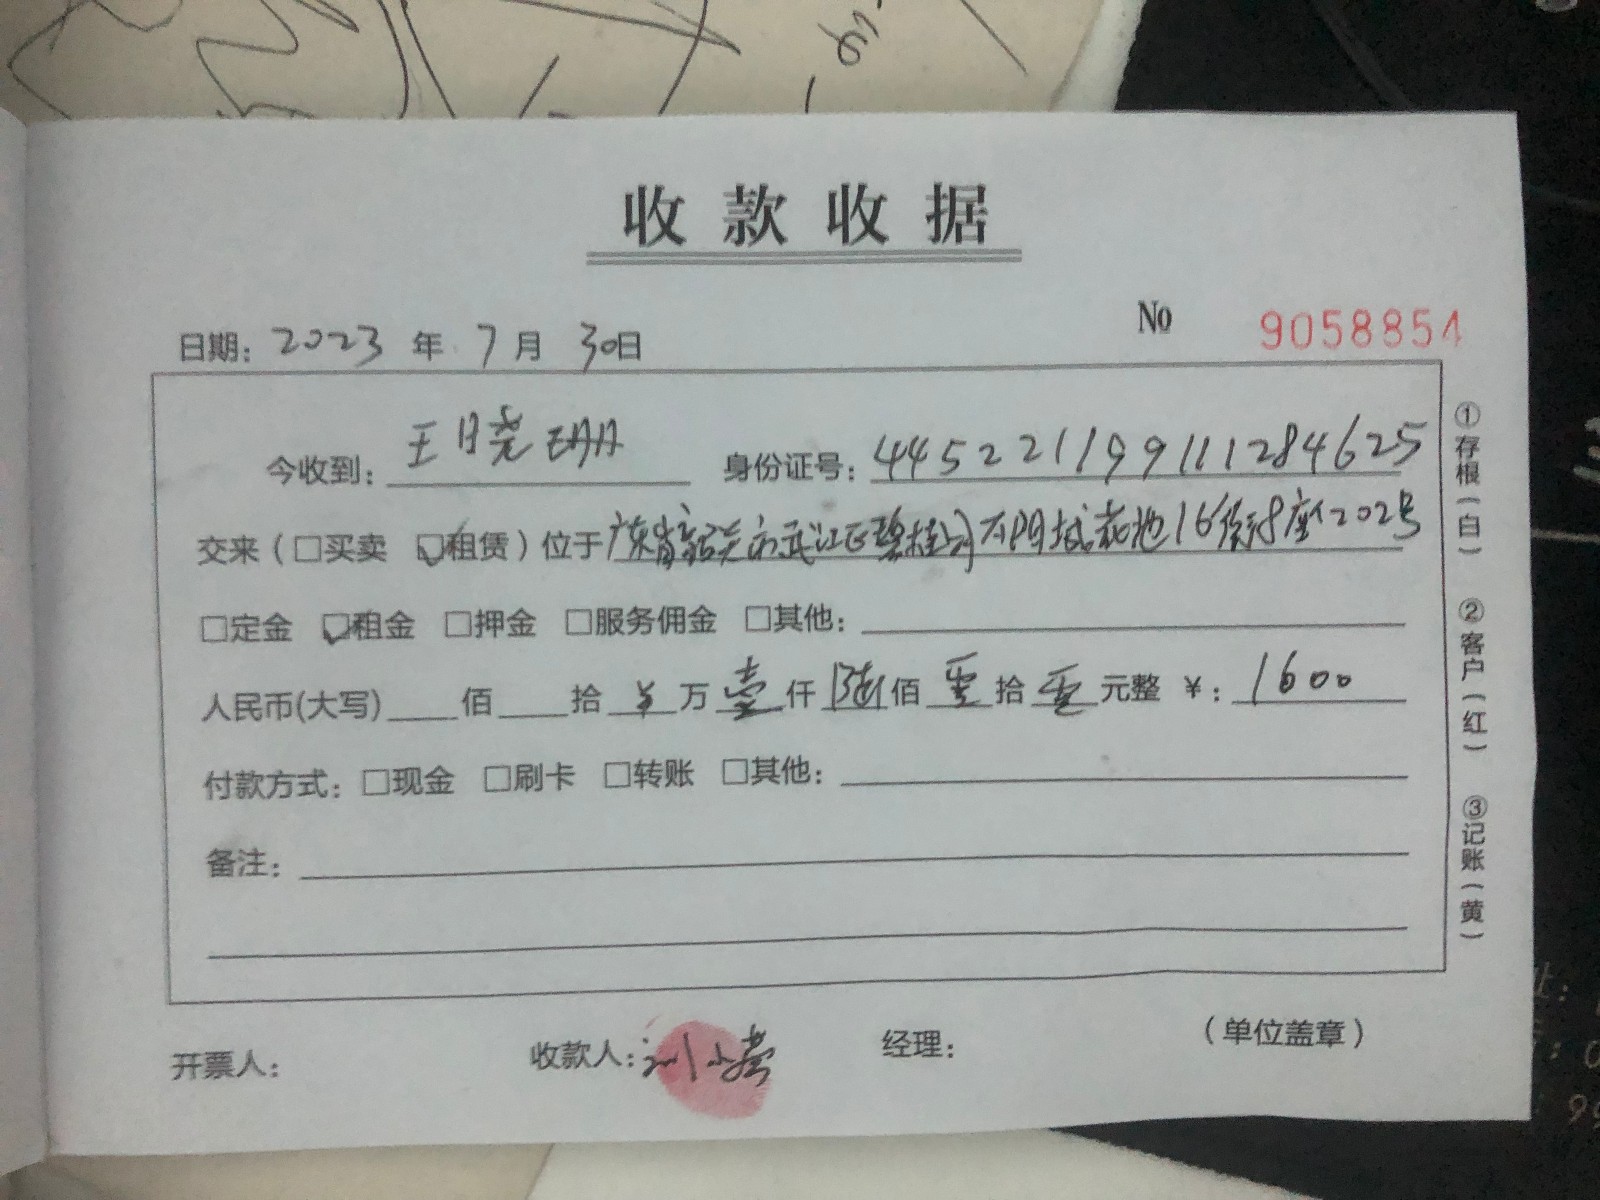 收款收据
No 9058854
日期: 2023 年 7 月 30日
今收到: 王晓珊 身份证号: 445221199111284625
交来(□买卖 ☑租赁)位于广东省韶关市武江区碧桂园太阳城花池16街8座1202号
□定金 ☑租金 □押金 □服务佣金 □其他:
人民币(大写) 佰 拾 ¥ 万 壹 仟 陆 佰 零 拾 零 元整 ¥: 1600
付款方式: □现金 □刷卡 □转账 □其他:
备注:
开票人: 收款人: 刘小 经理: (单位盖章)
①存根(白) ②客户(红) ③记账(黄)